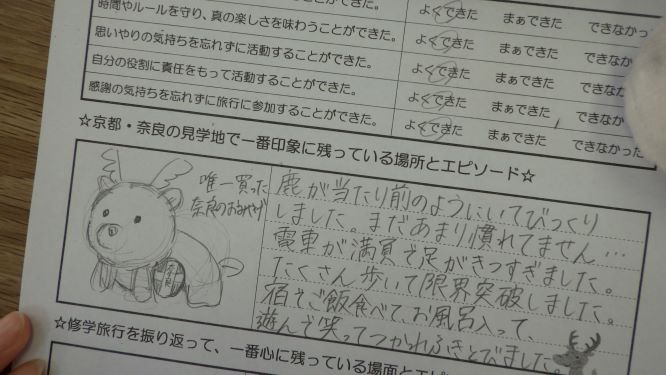 時間やルールを守り、真の楽しさを味わうことができた。 よくできた まぁできた できなかった
思いやりの気持ちを忘れずに活動することができた。 よくできた まぁできた できなかっ
自分の役割に責任をもって活動することができた。 よくできた まぁできた できなか
感謝の気持ちを忘れずに旅行に参加することができた。 よくできた まぁできた できなか
よくできた まぁできた できなかった
☆京都・奈良の見学地で一番印象に残っている場所とエピソード☆
唯一買った
奈良のおみやげ
鹿が当たり前のようにいてびっくり
しました。まだあまり慣れてません…
電車が満員で足がきつすぎました。
たくさん歩いて限界突破しました。
宿でご飯食べて、お風呂入って、
遊んで笑ってつかれふきとびました。
☆修学旅行を振り返って、一番心に残っている場面とエピ